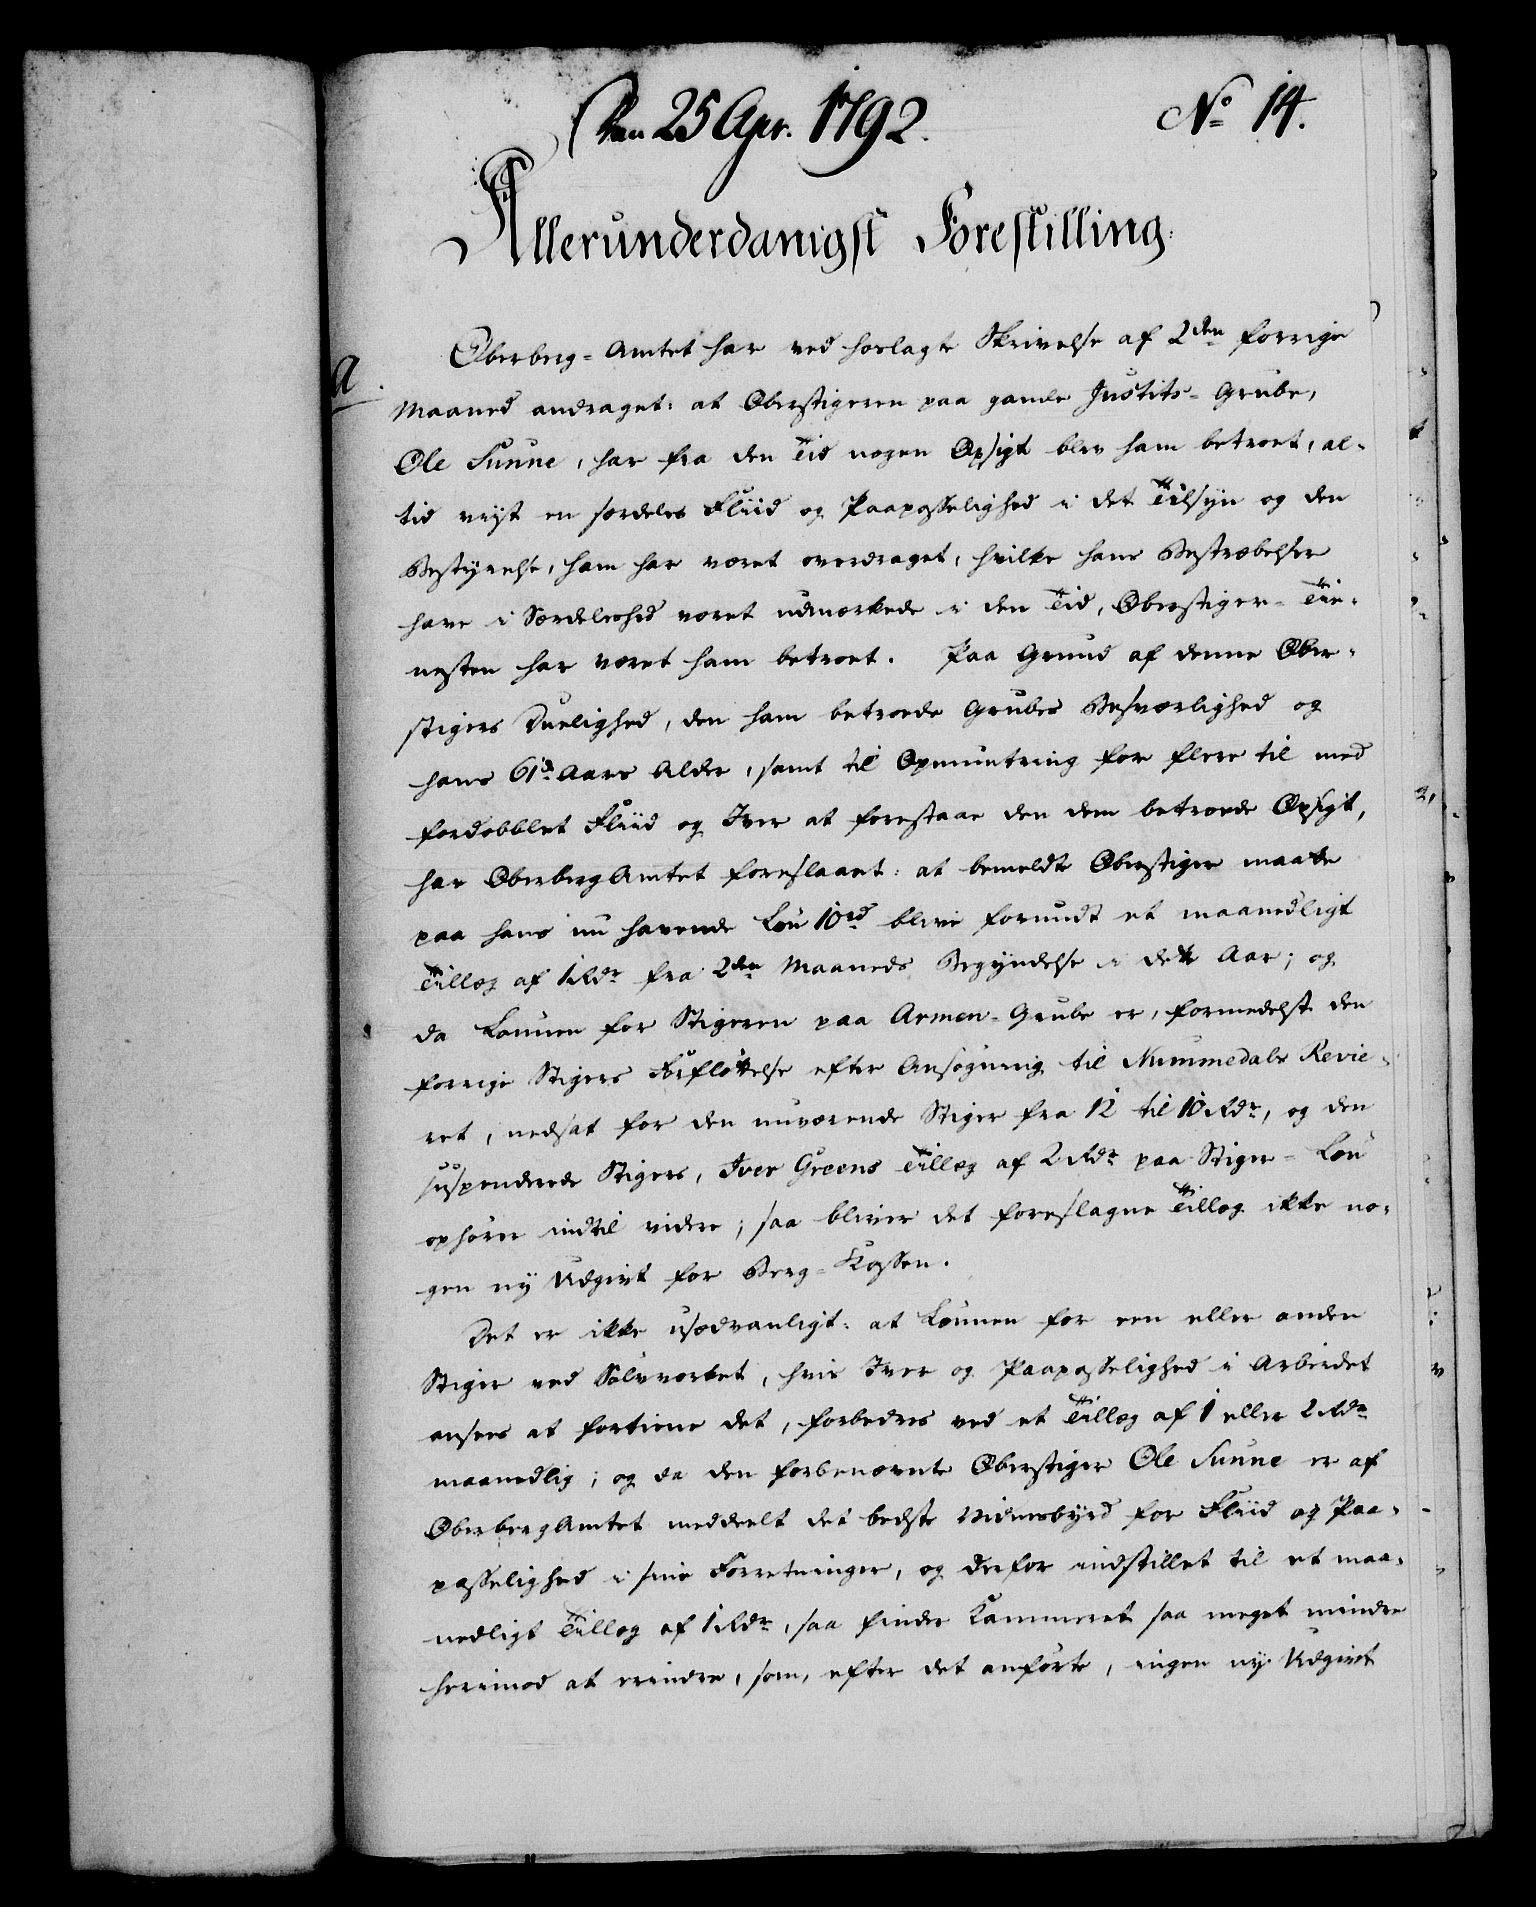 Den 25 Apr. 1792. No 14.
Allerunderdanigst Forestilling.
a.
Oberberg-Amtet har ved hoslagte Skrivelse af 2den forrige
Maaned andraget: at Oberstigeren paa gamle Justits-Grube,
Ole Sunne, har fra den Tid nogen Opsigt blev ham betroet, al-
tid viist en særdeles Fliid og Paapasselighed i det Tilsyn og den
Bestyrelse, ham har været overdraget, hvilke hans Bestræbelser
have i Særdeleshed været udmærkede i den Tid, Oberstiger-Tie-
nesten har været ham betroet. Paa Grund af denne Ober-
stigers Duelighed, den ham betroede Grubes Besværlighed og
hans 61de Aars Alder, samt til Opmuntring for flere til med
fordobblet Fliid og Iver at forestaae den dem betroede Opsigt,
har OberbergAmtet foreslaaet: at bemeldte Oberstiger maatte
paa hans nu havende Løn 10rd blive forundt et maanedligt
Tillæg af 1 Rdr fra 2den Maaneds Begyndelse i dette Aar; og
da Lønnen for Stigeren paa Armen-Grube er, formedelst den
forrige Stigers Forflöttelse efter Ansøgning til Nummedals Revie-
ret, nedsat for den nuværende Stiger fra 12 til 10 Rdr, og den
suspenderede Stigers, Iver Greens Tillæg af 2 Rdr paa Stiger-Løn
ophører indtil videre; saa bliver det foreslagne Tillæg ikke no-
gen ny Udgivt for Berg-Kassen.
Det er ikke usædvanligt: at Lønnen for een eller anden
Stiger ved Sølvværket, hvis Iver og Paapasselighed i Arbeidet
ansees at fortiene det, forbedres ved et Tillæg af 1 eller 2 Rdr
maanedlig; og da den forbenævnte Oberstiger Ole Sunne er af
OberbergAmtet meddeelt det bedste Vidnesbyrd for Fliid og Paa-
passelighed i sine Forretninger, og derfor indstillet til et maa-
nedligt Tillæg af 1 Rdr, saa finder Kammeret saa meget mindre
herimod at erindre, som, efter det anførte, ingen ny Udgivt